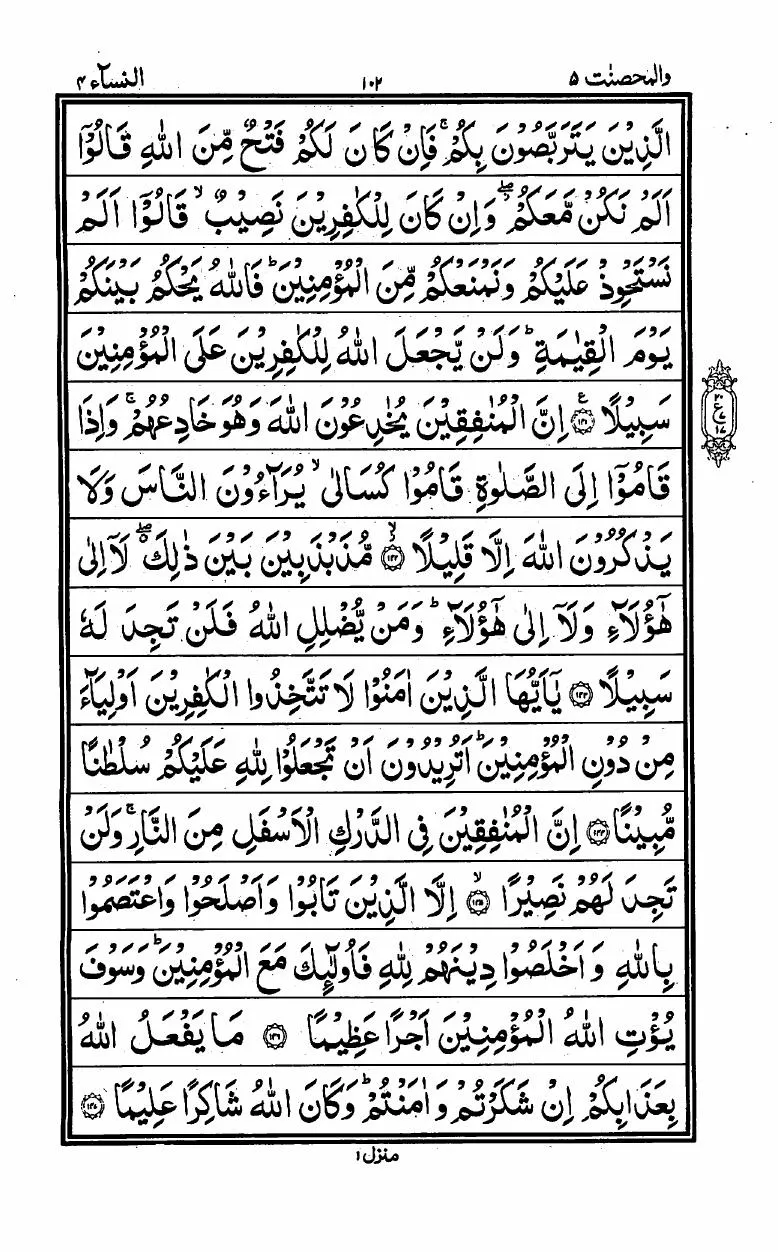 والمحصنت ۵ ۱۰۲ النسآء ۴
الَّذِيْنَ يَتَرَبَّصُوْنَ بِكُمْ ۚ فَاِنْ كَانَ لَكُمْ فَتْحٌ مِّنَ اللّٰهِ قَالُوْۤا
اَلَمْ نَكُنْ مَّعَكُمْ ۖ وَاِنْ كَانَ لِلْكٰفِرِيْنَ نَصِيْبٌ ۙ قَالُوْۤا اَلَمْ
نَسْتَحْوِذْ عَلَيْكُمْ وَنَمْنَعْكُمْ مِّنَ الْمُؤْمِنِيْنَ ؕ فَاللّٰهُ يَحْكُمُ بَيْنَكُمْ
يَوْمَ الْقِيٰمَةِ ؕ وَلَنْ يَّجْعَلَ اللّٰهُ لِلْكٰفِرِيْنَ عَلَى الْمُؤْمِنِيْنَ
سَبِيْلًا ﴿۱۴۱﴾ اِنَّ الْمُنٰفِقِيْنَ يُخٰدِعُوْنَ اللّٰهَ وَهُوَ خَادِعُهُمْ ۚ وَاِذَا
قَامُوْۤا اِلَى الصَّلٰوةِ قَامُوْا كُسَالٰى ۙ يُرَآءُوْنَ النَّاسَ وَلَا
يَذْكُرُوْنَ اللّٰهَ اِلَّا قَلِيْلًا ﴿۱۴۲﴾ۙ مُّذَبْذَبِيْنَ بَيْنَ ذٰلِكَ ۖ لَاۤ اِلٰى
هٰۤؤُلَآءِ وَلَاۤ اِلٰى هٰۤؤُلَآءِ ؕ وَمَنْ يُّضْلِلِ اللّٰهُ فَلَنْ تَجِدَ لَهٗ
سَبِيْلًا ﴿۱۴۳﴾ يٰۤاَيُّهَا الَّذِيْنَ اٰمَنُوْا لَا تَتَّخِذُوا الْكٰفِرِيْنَ اَوْلِيَآءَ
مِنْ دُوْنِ الْمُؤْمِنِيْنَ ؕ اَتُرِيْدُوْنَ اَنْ تَجْعَلُوْا لِلّٰهِ عَلَيْكُمْ سُلْطٰنًا
مُّبِيْنًا ﴿۱۴۴﴾ اِنَّ الْمُنٰفِقِيْنَ فِى الدَّرْكِ الْاَسْفَلِ مِنَ النَّارِ ۚ وَلَنْ
تَجِدَ لَهُمْ نَصِيْرًا ﴿۱۴۵﴾ۙ اِلَّا الَّذِيْنَ تَابُوْا وَاَصْلَحُوْا وَاعْتَصَمُوْا
بِاللّٰهِ وَاَخْلَصُوْا دِيْنَهُمْ لِلّٰهِ فَاُولٰٓئِكَ مَعَ الْمُؤْمِنِيْنَ ؕ وَسَوْفَ
يُؤْتِ اللّٰهُ الْمُؤْمِنِيْنَ اَجْرًا عَظِيْمًا ﴿۱۴۶﴾ مَا يَفْعَلُ اللّٰهُ
بِعَذَابِكُمْ اِنْ شَكَرْتُمْ وَاٰمَنْتُمْ ؕ وَكَانَ اللّٰهُ شَاكِرًا عَلِيْمًا ﴿۱۴۷﴾
منزل ۱